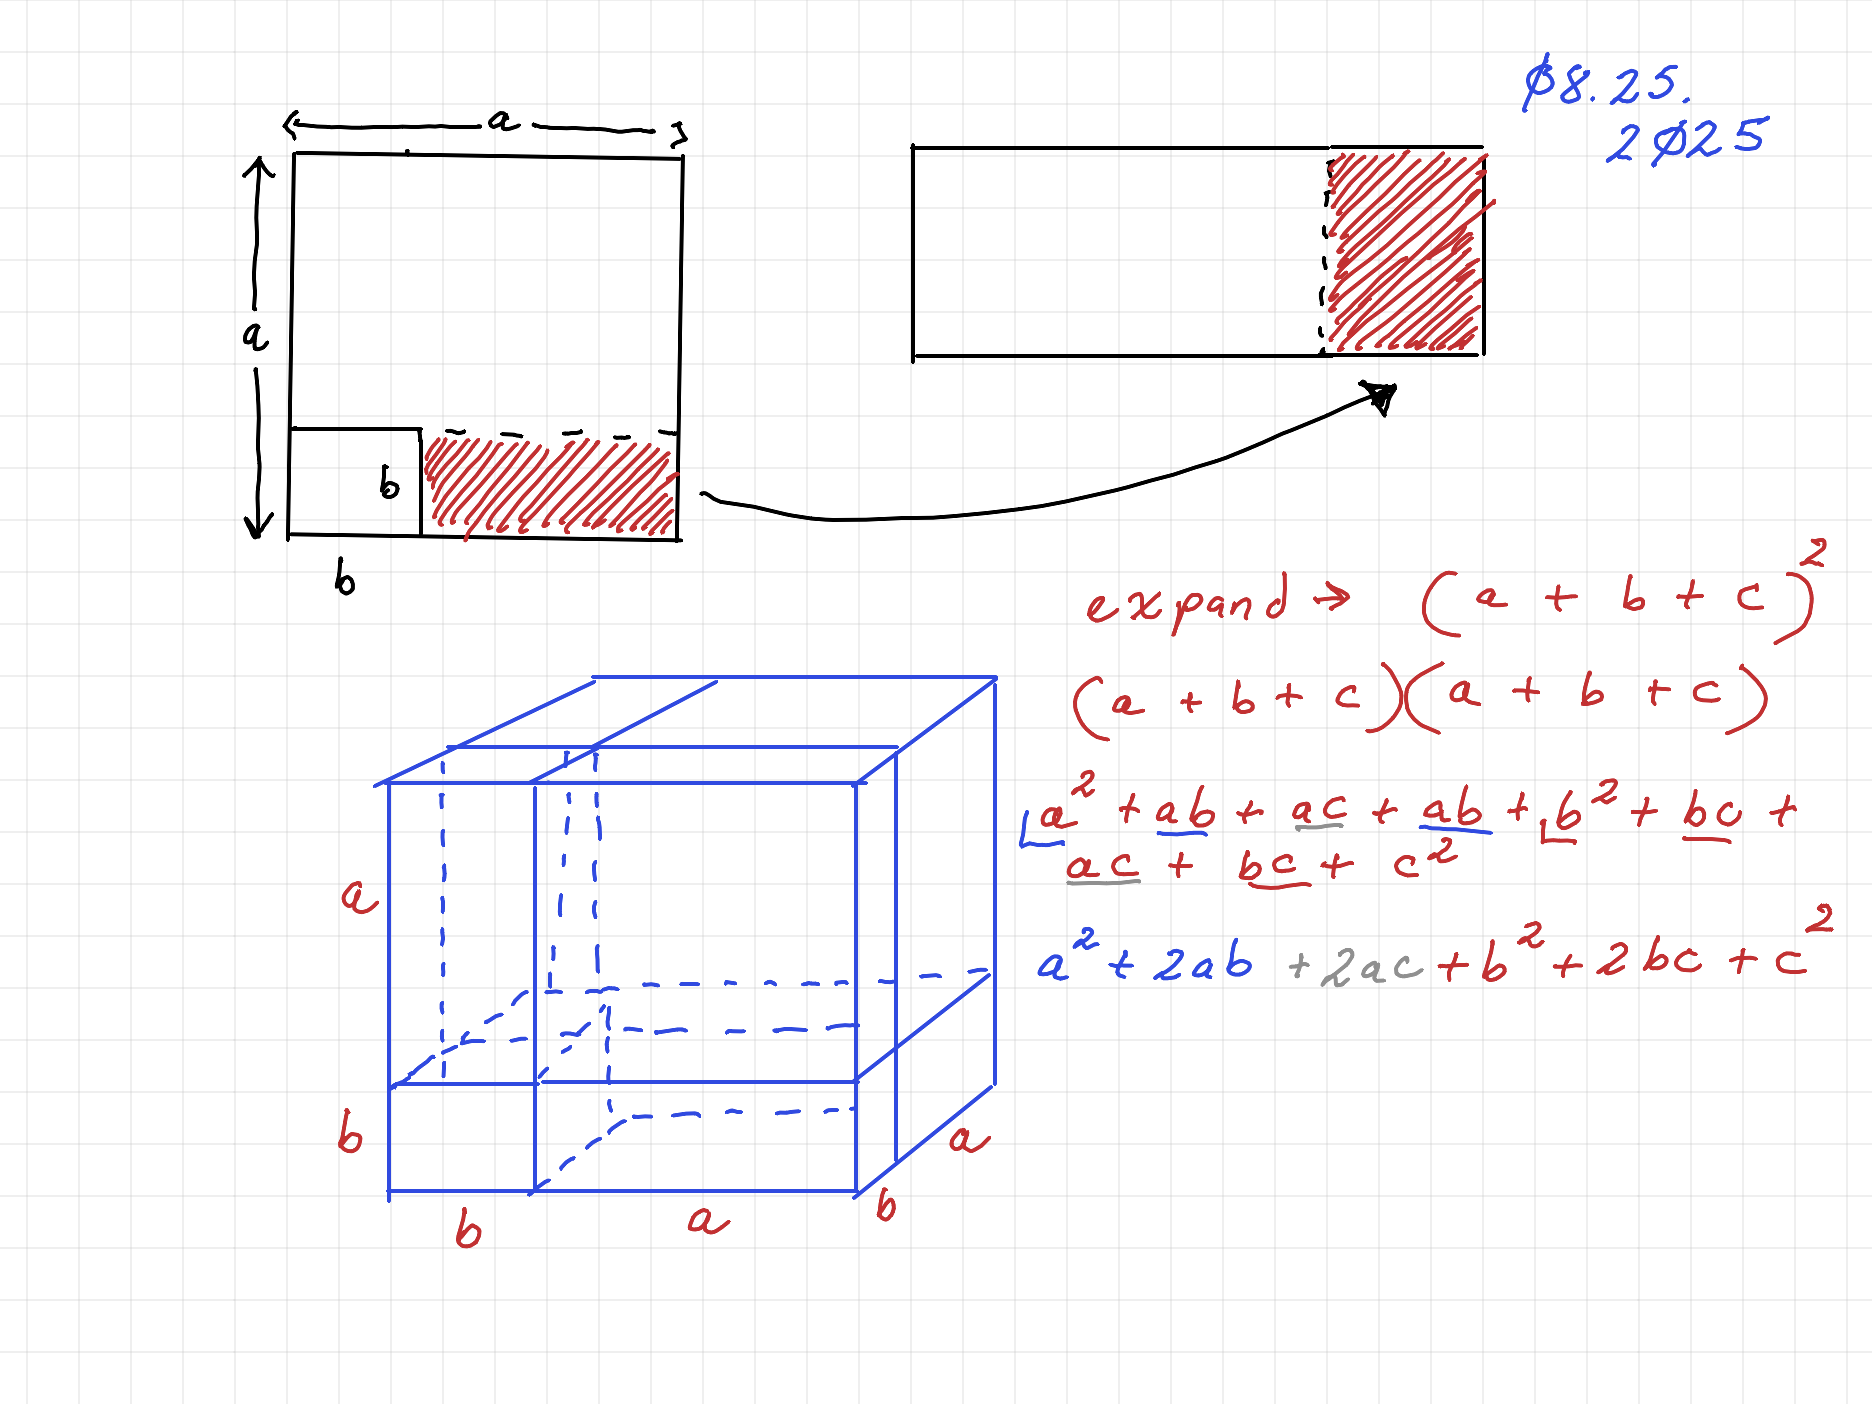 ø8.25.
2ø25
a
a
b
b
expand → (a + b + c)²
(a + b + c)(a + b + c)
a² + ab + ac + ab + b² + bc +
ac + bc + c²
a² + 2ab + 2ac + b² + 2bc + c²
a
b
a
b
a
b